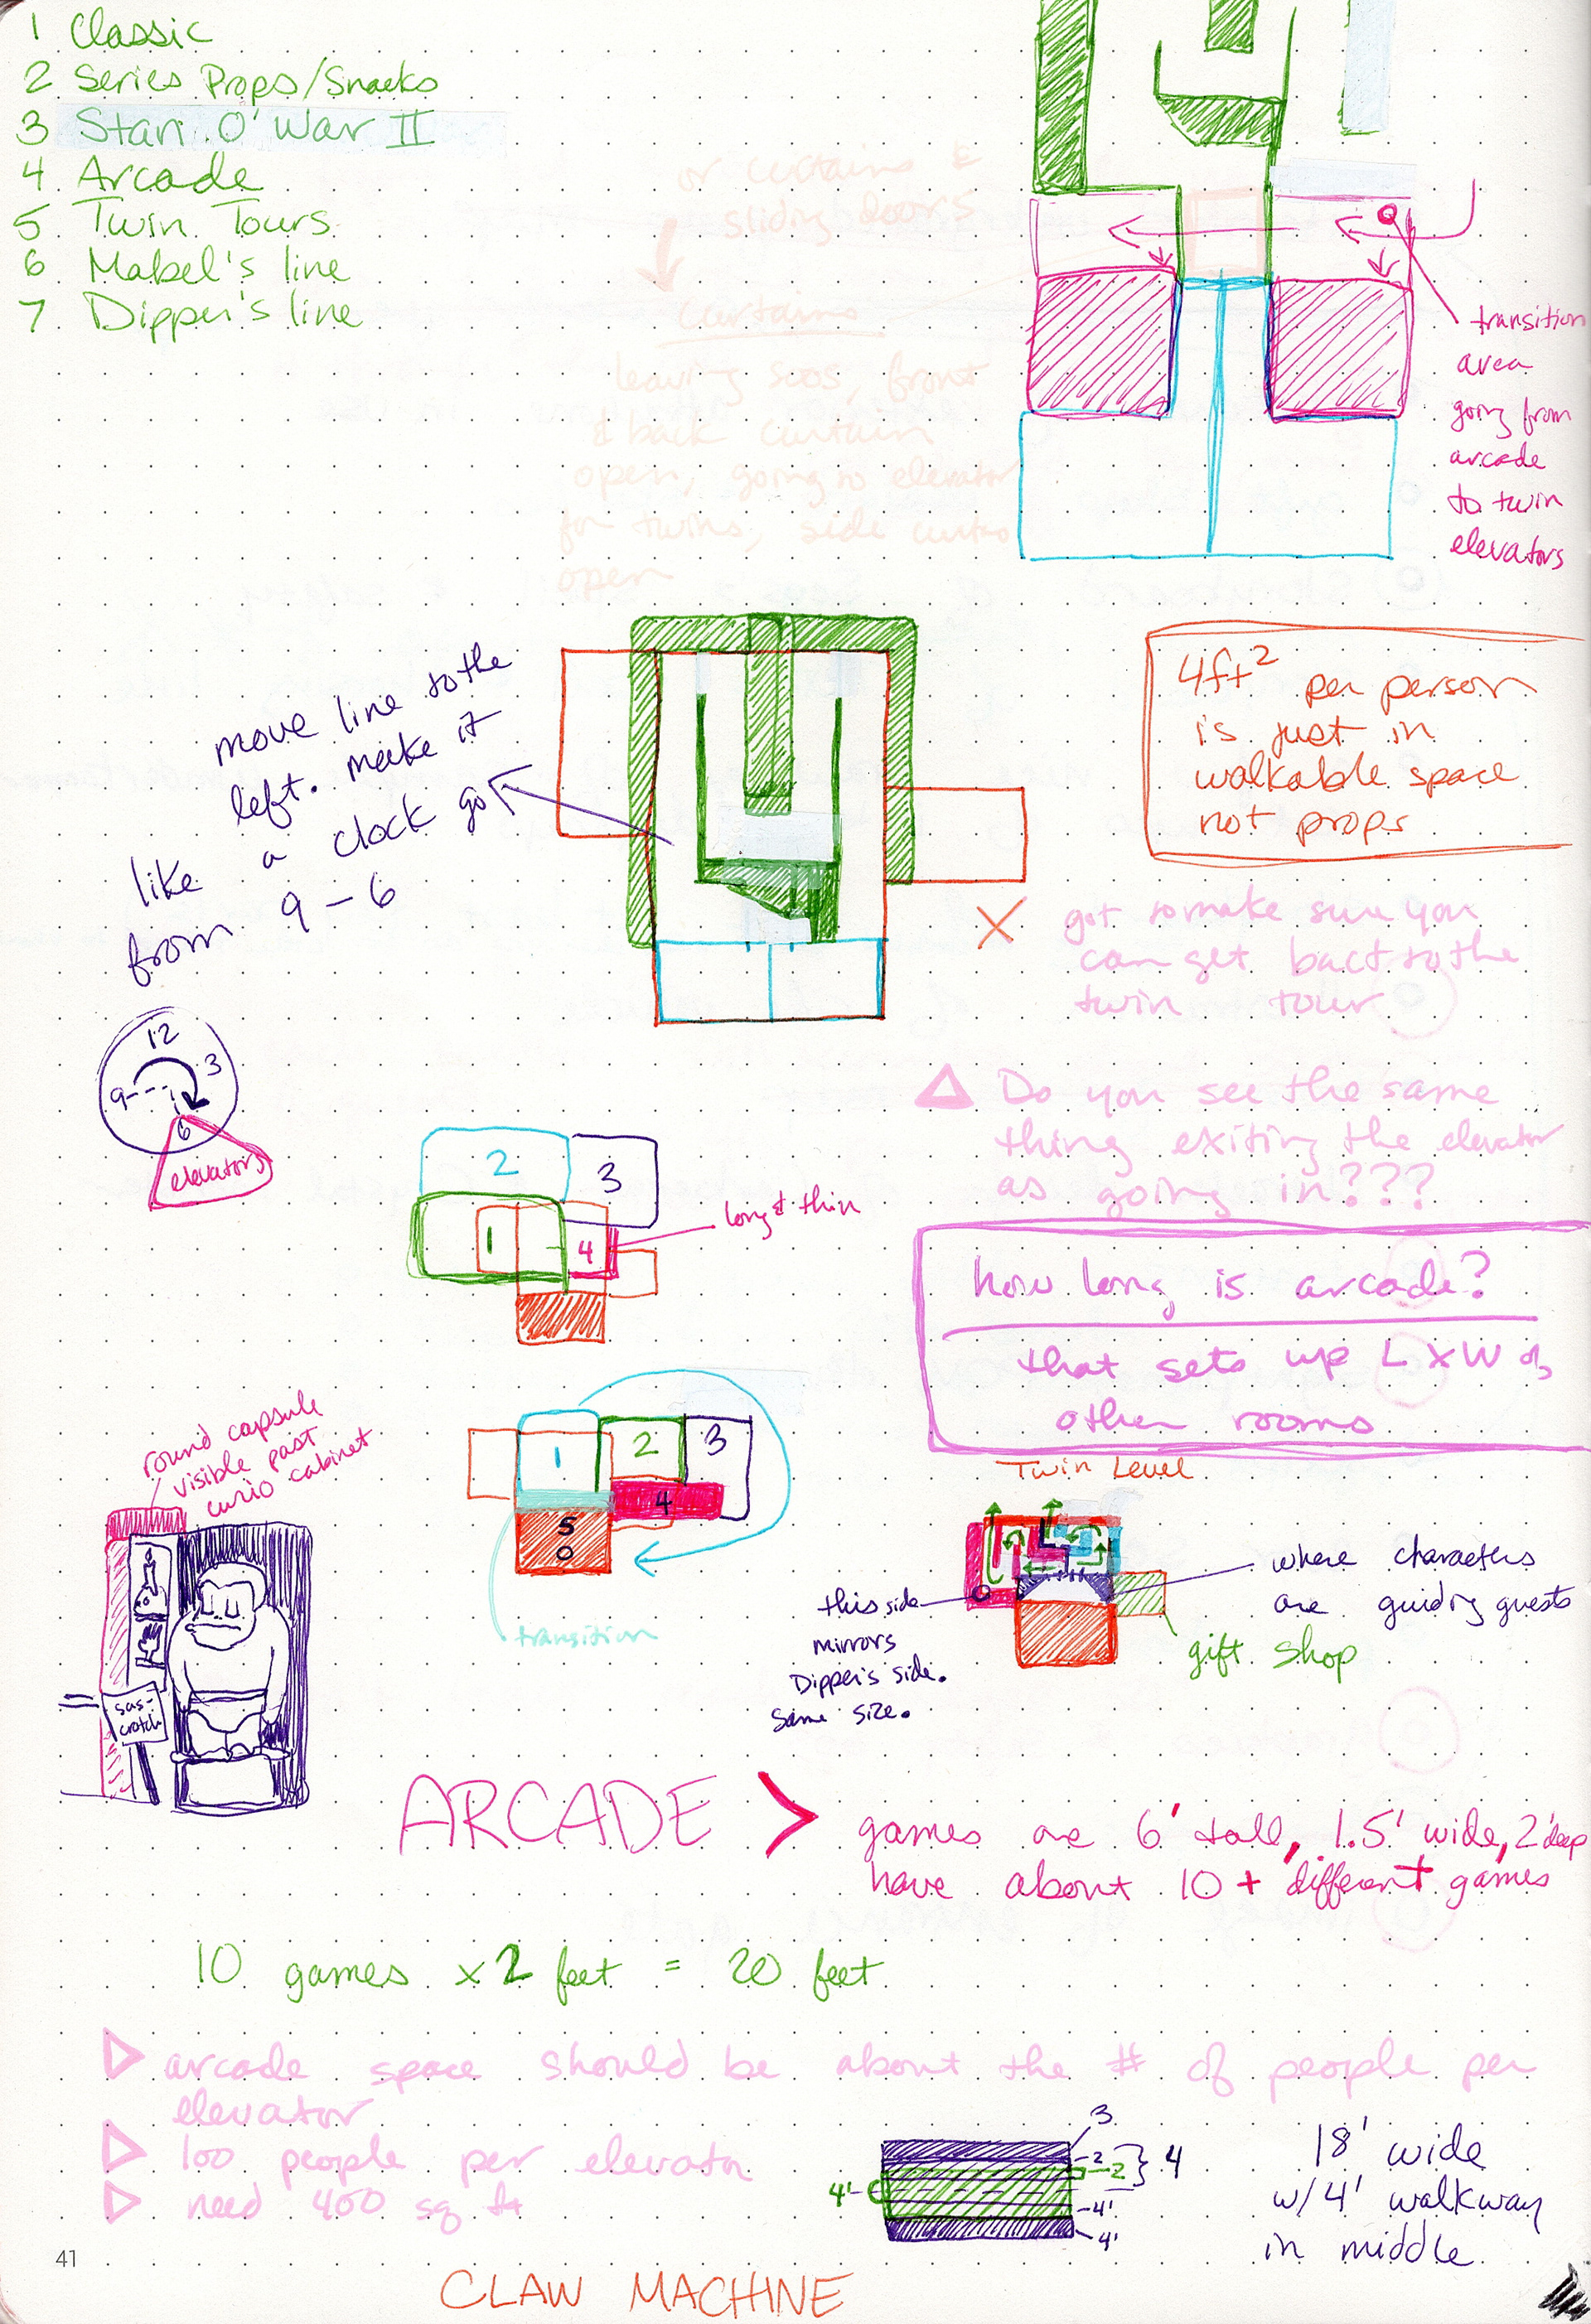 1 Classic
2 Series Props/Snacks
3 Stan O'War II
4 Arcade
5 Twin Tours
6 Mabel's line
7 Dipper's line
or curtains &
sliding doors
curtains
leaving soos, front
& back curtain
open, going to elevator
for twins, side curtain
open
transition
area
going from
arcade
to twin
elevators
move line to the
left. make it
like a clock go
from 9-6
4ft² per person
is just in
walkable space
not props
X got to make sure you
can get back to the
twin tour
12
9
3
6
elevators
Do you see the same
thing exiting the elevator
as going in???
2
3
1
4
long & thin
how long is arcade?
that sets up L x W of
other rooms
round capsule
visible past
curio cabinet
1
2
3
4
5
transition
sas-
crotch
Twin Level
this side
mirrors
Dipper's side.
Same size.
where characters
are guiding guests
gift shop
ARCADE >
games are 6' tall, 1.5' wide, 2' deep
have about 10+ different games
10 games x 2 feet = 20 feet
arcade space should be about the # of people per
elevator
100 people per elevator
need 400 sq ft
3
2
2
4
4'
4'
4'
18' wide
w/4' walkway
in middle
41
CLAW MACHINE